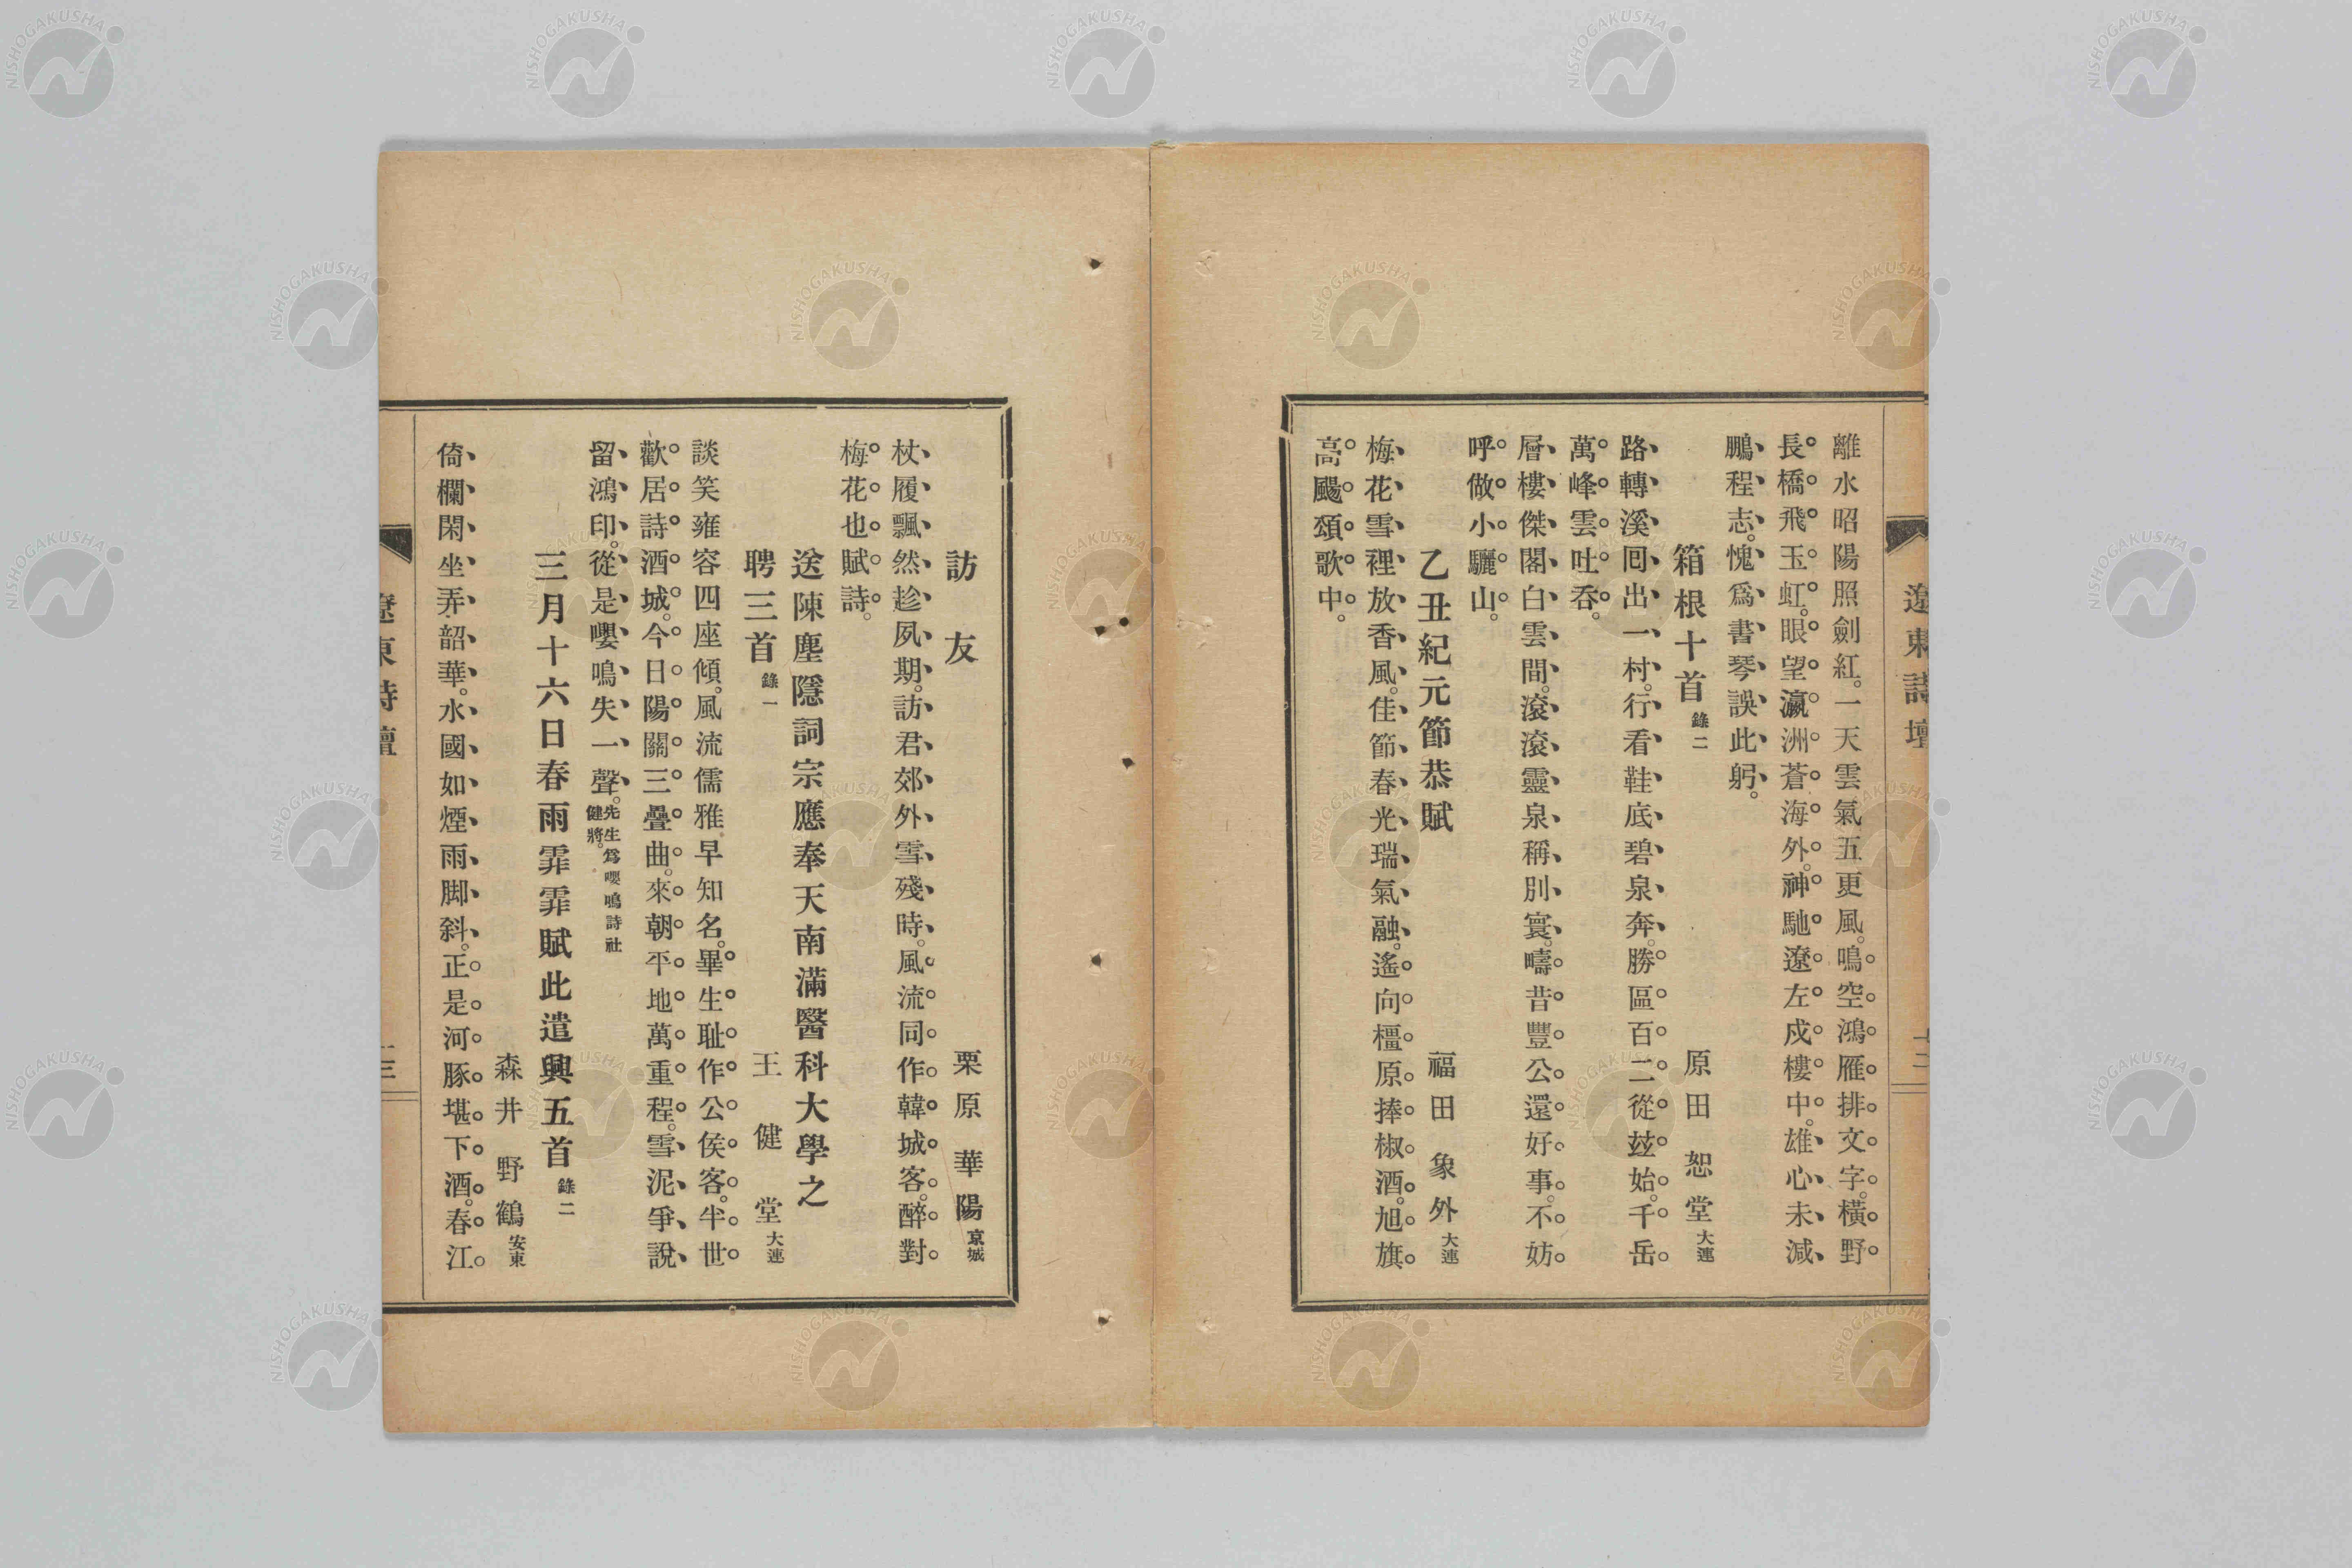 遼東詩壇
離水昭陽照劍紅。一天雲氣五更風。鳴空鴻雁排文字。橫野
長橋飛玉虹。眼望瀛洲蒼海外。神馳遼左戍樓中。雄心未減
鵬程志。愧爲書琴誤此躬。
箱根十首 錄二 原田恕堂 大連
路轉溪回出一村。行看鞋底碧泉奔。勝區百二從玆始。千岳
萬峰雲吐呑。
層樓傑閣白雲間。滾滾靈泉稱別寰。疇昔豐公還好事。不妨
呼做小驪山。
乙丑紀元節恭賦 福田象外 大連
梅花雪裡放香風。佳節春光瑞氣融。遙向橿原捧椒酒。旭旗
高颺頌歌中。
訪友 栗原華陽 京城
杖履飄然趁夙期。訪君郊外雪殘時。風流同作韓城客。醉對
梅花也賦詩。
送陳塵隱詞宗應奉天南滿醫科大學之
聘三首 錄一 王健堂 大連
談笑雍容四座傾。風流儒雅早知名。畢生耻作公侯客。半世
歡居詩酒城。今日陽關三疊曲。來朝平地萬重程。雪泥爭說
留鴻印。從是嚶鳴失一聲。先生爲嚶鳴詩社
健將。
三月十六日春雨霏霏賦此遣興五首 錄二
森井野鶴 安東
倚欄閑坐弄韶華。水國如煙雨脚斜。正是河豚堪下酒。春江
遼東詩壇